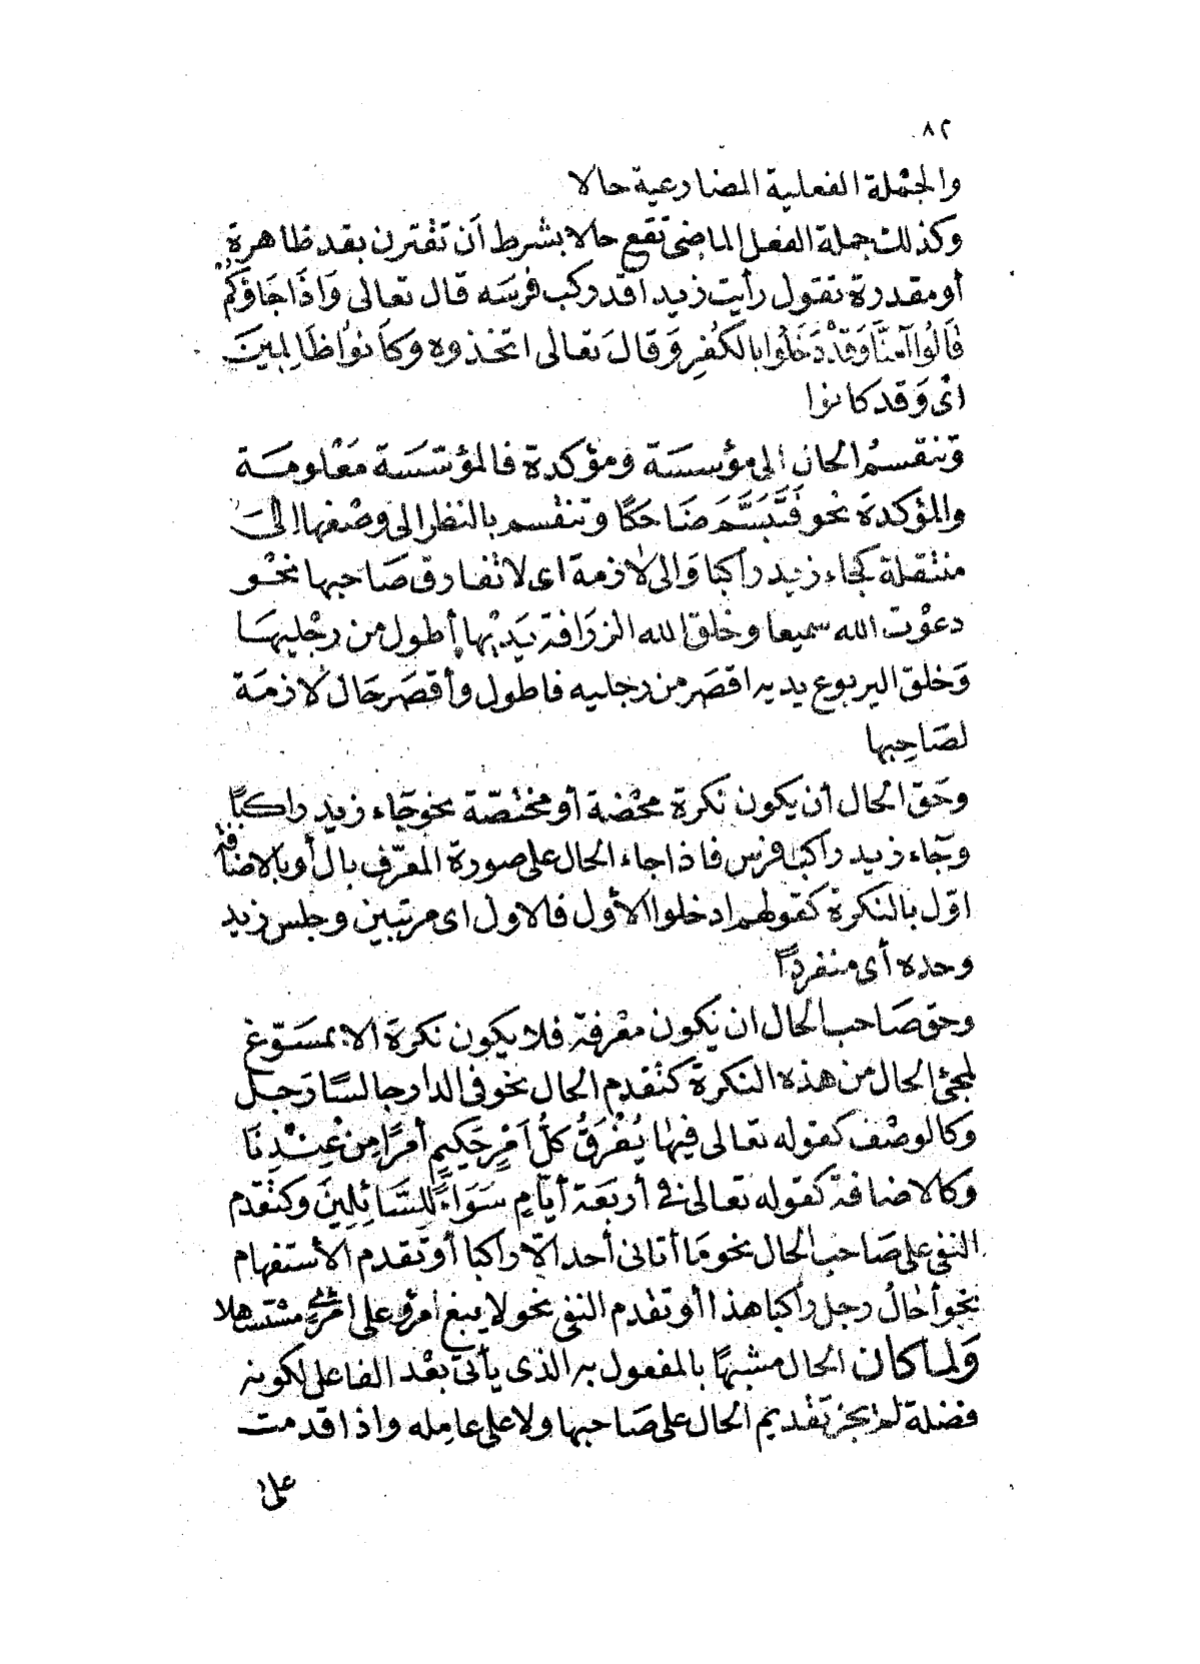 ٨٢
والجْملة الفعلية المضارعية حالا
وكذلك جملة الفعل الماضى تقع حالا بشرط أن تقْترن بقد ظاهرة
أو مقدرة تقول رأيت زيدا قد ركب فرسَه قال تعالى وَاذَا جَاؤكُمْ
قَالُوا آمنَّا وَقَدْ دَخَلُوا بالكُفرِ وَقالَ تعالى اتخذوه وكَانوُا ظَالِمِينَ
اىْ وَقد كانوا
وَتنقسمُ الحال الى مؤسسَة ومؤكدة فالمؤسّسَة مَعْلومَة
والمؤكدة نْحو فَتَبَسَّمَ ضَاحَكًا وتنقْسم بالنظر الى وصْفها الىَ
منْتقلة كجاء زيد راكبا وَالى لازمة اى لا تفارق صَاحبها نحْو
دعوْت الله سميعا وخلق الله الزرَافة يَديْها أطول من رجْليهَا
وَخلق اليربوع يديه اقصَر من رجليه فاطول وأقصَر حَال لازمَة
لصَاحِبها
وحَق الحال أن يكون نكرة محْضة أو مخْتصّة نحو جَاء زيد راكبًا
وجَاء زيد راكب فرس فاذا جاء الحال على صورة المعرّف بال أو بالاضافة
اوّل بالنكرة كقولهم ادخلوا الأول فالاول اى مرتبين وجلس زيد
وحده أى منفردًا
وحق صَاحب الحال ان يكون معْرفة فلا يكون نكرة الا بمسَوّغ
لمجئ الحال من هذه النكرة كتْقدم الحال نحو فى الدار جالسًا رَجل
وَكالوصْف كقوله تعالى فِيهَا يُفْرَقُ كلُّ أَمْرٍ حَكيمٍ أمْرًا مِنْ عِنْدِنَا
وَكالاضافة كقوله تعالى فى أربَعَة أيّامٍ سَوَاءً للِسَّائِلِينَ وكتْقدم
النفى على صَاحب الحال نحو مَا أتانى أحد الّا راكبا أو تقدم الأستفهام
نحو أخالُ رجل راكبا هذا أو تقدم النفى نحو لا يبغ امرؤ على امرئٍ مسْتسْهلا
وَلما كان الحال مشبهًا بالمفعول به الذى يأتى بعْد الفاعل لكونه
فضلة لم يجز تقديم الحال على صَاحبها ولا على عامِله واذا قدمت
على